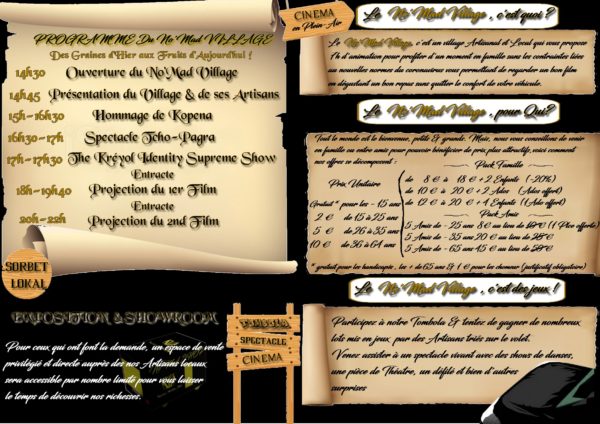 PROGRAMME Du No'Mad VILLAGE
Des Graines d'Hier aux Fruits d'Aujourd'hui !
14h30 Ouverture du No'Mad Village
14h45 Présentation du Village & de ses Artisans
15h - 16h30 Hommage de Kopena
16h30 - 17h Spectacle Tcho-Pagra
17h - 17h30 The Kréyol Identity Supreme Show
Entracte
18h - 19h40 Projection du 1er Film
Entracte
20h - 22h Projection du 2nd Film
SORBET
LOKAL
EXPOSITION & SHOWROOM
Pour ceux qui ont font la demande, un espace de vente
privilégié et directe auprès des nos Artisans locaux
sera accessible par nombre limité pour vous laisser
le temps de découvrir nos richesses.
TOMBOLA
SPECTACLE
CINEMA
CINEMA
en Plein-Air
Le No'Mad Village, c'est quoi ?
Le No'Mad Village, c'est un village Artisanal et Local qui vous propose
7h d'animation pour profiter d'un moment en famille sans les contraintes liées
au nouvelles normes du coronavirus vous permettant de regarder un bon film
en dégustant un bon repas sans quitter le confort de votre véhicule.
Le No'Mad Village, pour Qui?
Tout le monde est le bienvenue, petits & grands. Mais, nous vous conseillons de venir
en famille ou entre amis pour pouvoir bénéficier de prix plus attractifs, voici comment
nos offres se décomposent :
Pack Famille
de 8 € à 18 € + 2 Enfants (-20%)
de 10 € à 20 € + 2 Ados (Ado offert)
de 12 € à 20 € + 1 Enfants (1Ado offert)
Prix Unitaire
Gratuit * pour les - 15 ans
2 € de 15 à 25 ans
5 € de 26 à 35 ans
10 € de 36 à 64 ans
Pack Amis
5 Amis de - 25 ans 8 € au lieu de 10 € (1 Place offerte)
5 Amis de - 35 ans 20 € au lieu de 25 €
5 Amis de - 65 ans 45 € au lieu de 50 €
* gratuit pour les handicapés, les + de 65 ans & 1 € pour les chomeur (justificatif obligatoire)
Le No'Mad Village, c'est des jeux !
Participez à notre Tombola & tentez de gagner de nombreux
lots mis en jeux par des Artisans triés sur le volet.
Venez assister à un spectacle vivant avec des shows de danses,
une pièce de Théatre, un défilé et bien d'autres
surprises